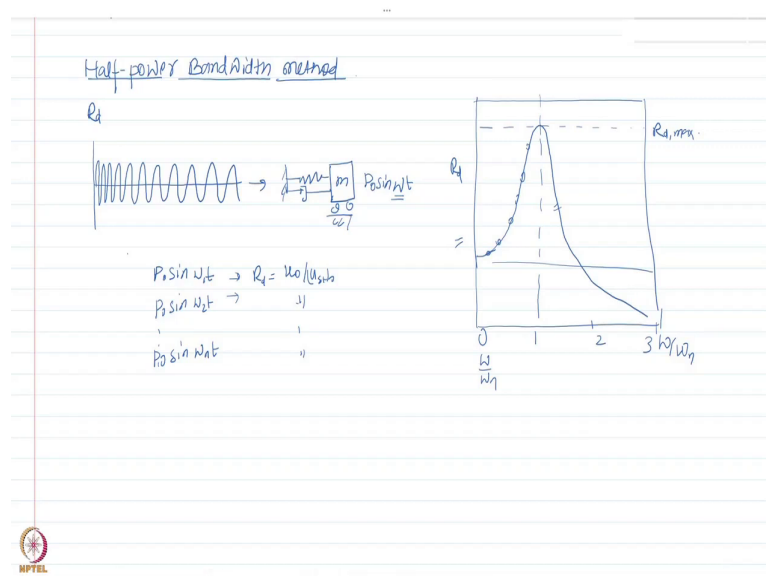 Half-power Bandwidth method
Rd
m
P0 sin wt
P0 sin w1t → Rd = u0/(ust)0
P0 sin w2t → "
P0 sin wnt "
Rd
Rd, max.
0 1 2 3 w/wn
w/wn
NPTEL